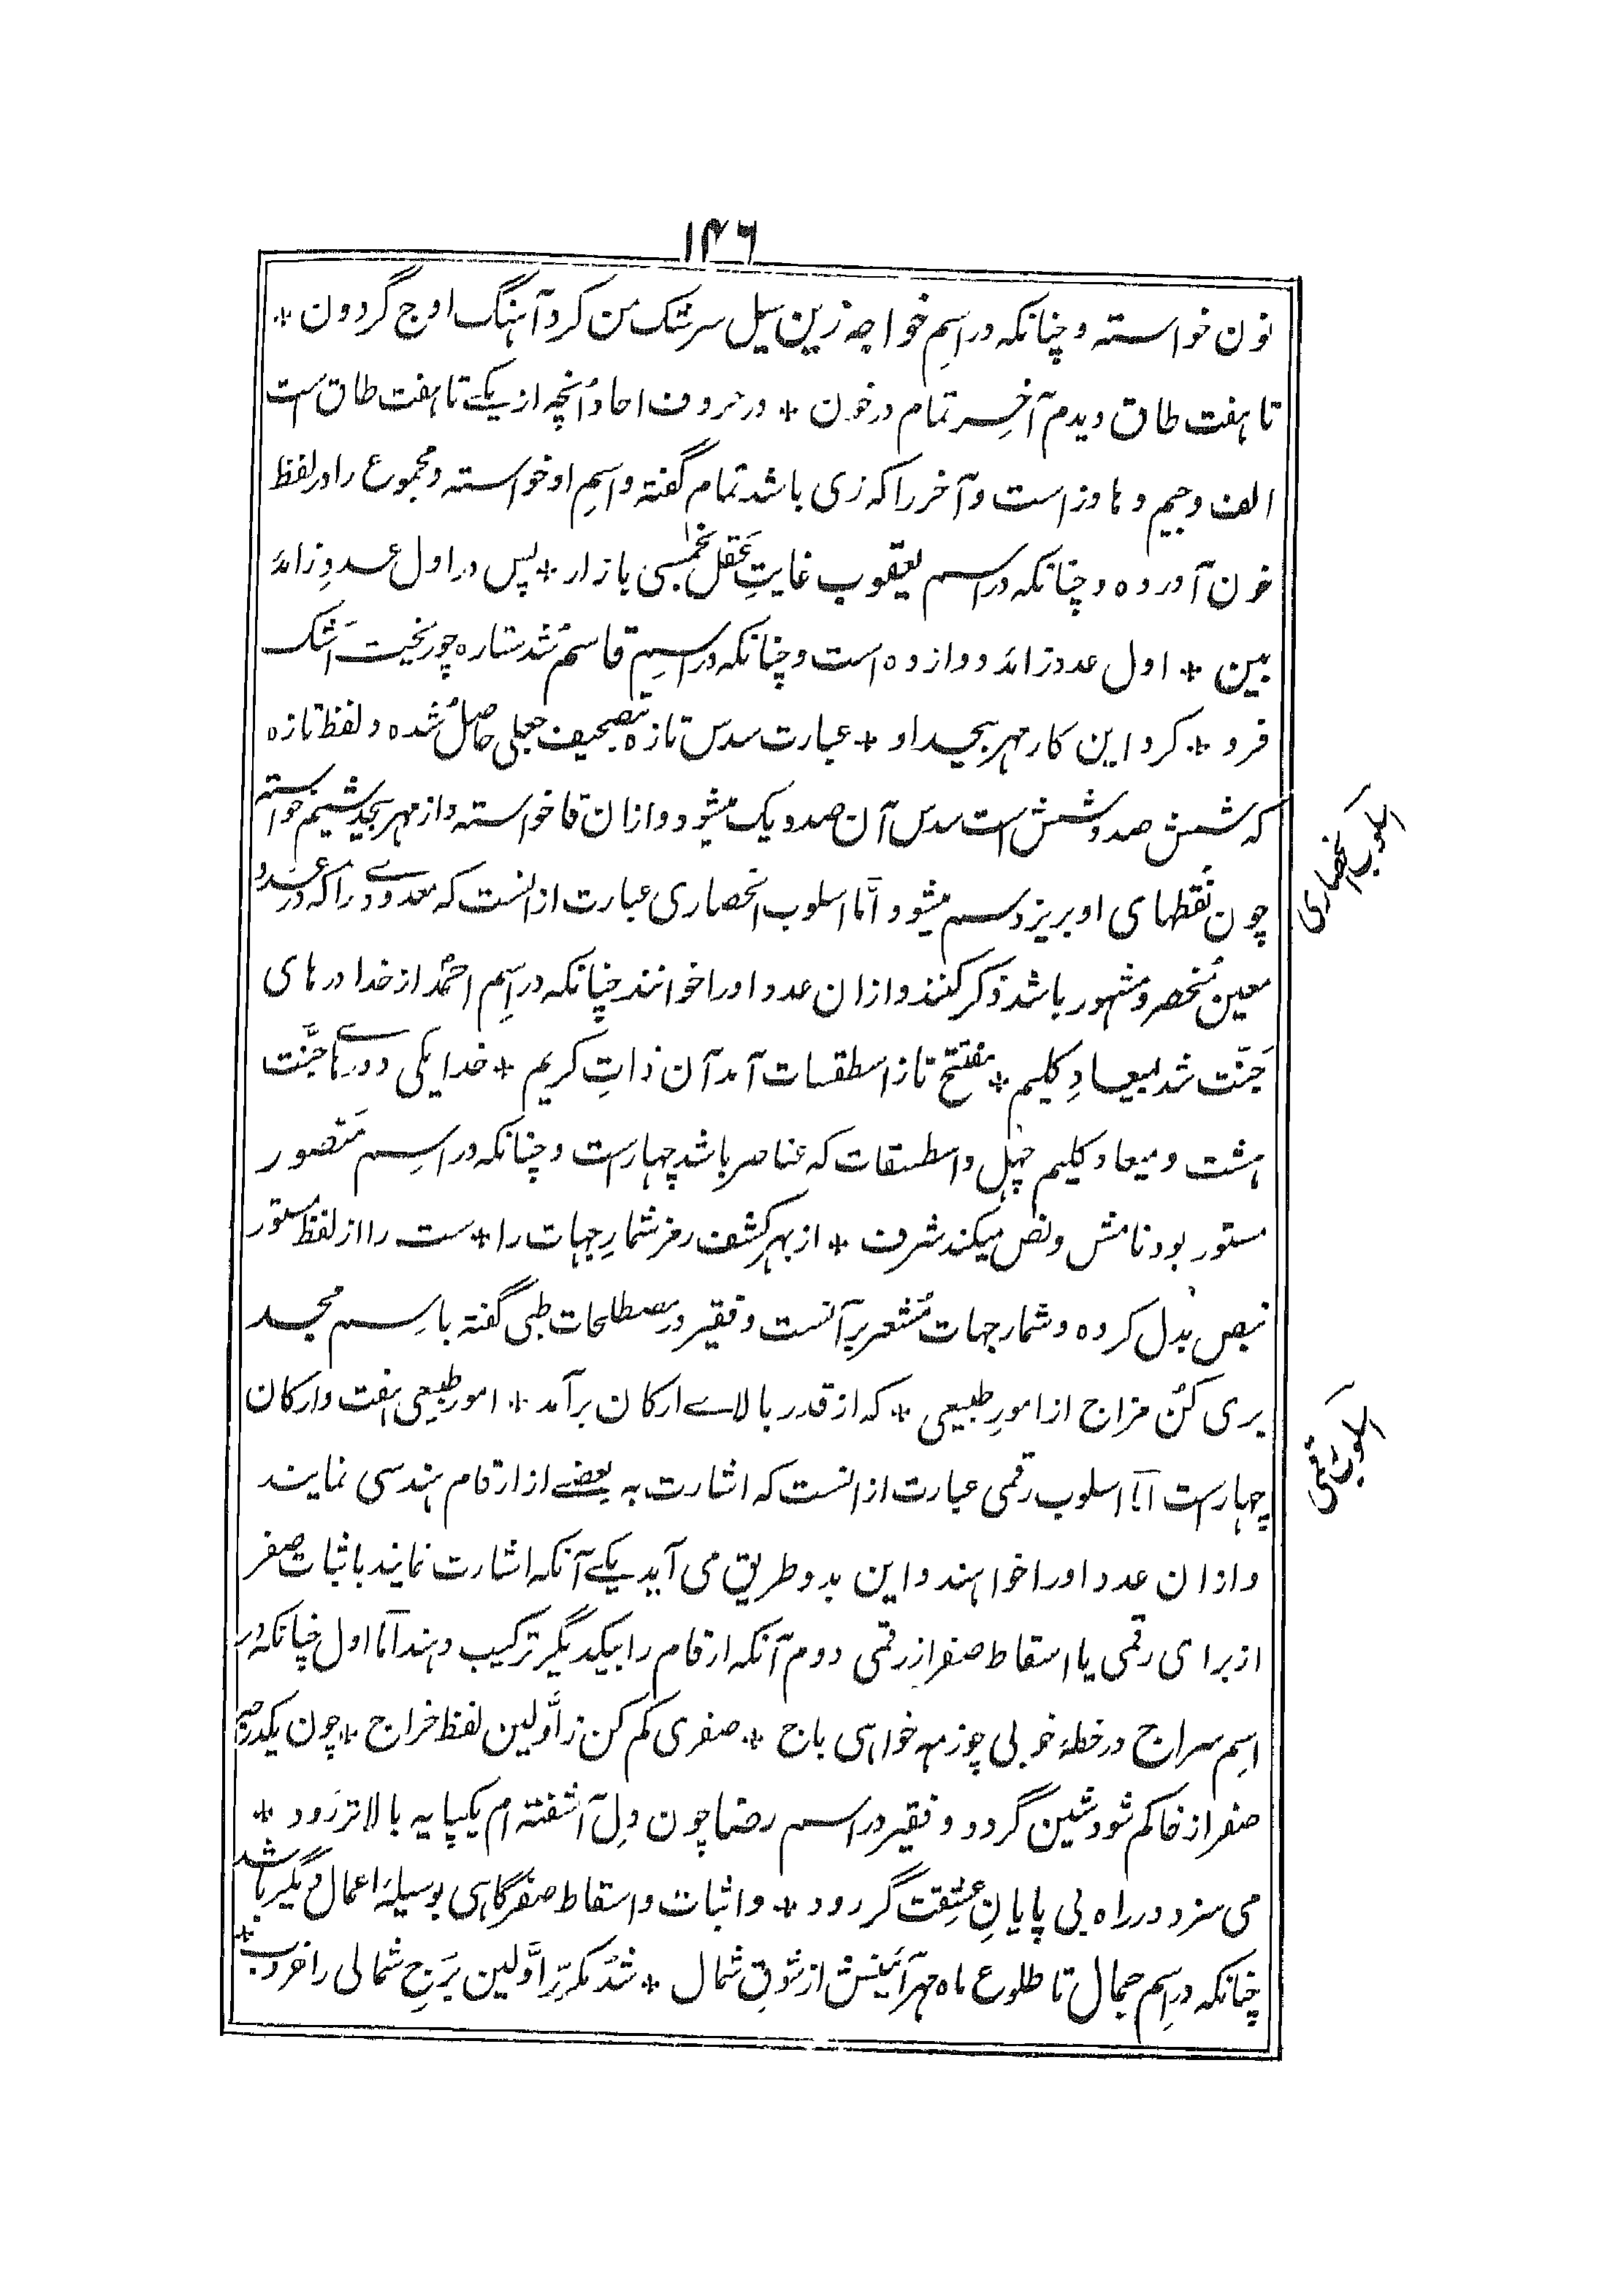 ۱۴۶
نون خواسته و چنانکه در اسمِ خواجه زین سیل سرشک من کرد آہنگ اوج گردون *
تا ہفت طاق دیدم آخِر تمام در خون * در حروف احاد اُنچہ از یکے تا ہفت طاق است
الف و جیم و ہا و زاست و آخر را کہ زی باشد تمام گفتہ و اسمِ او خواستہ و مجموع را در لفظ
خون آوردہ و چنانکہ در اسم یعقوب غایتِ عقل بخمسی باز ار * پس در اول عددِ زائد
بین * اول عدد زائد دوازدہ است و چنانکہ در اسمِ قاسم شد ستارہ چو ریخت اَشک
فرو * کرد این کار مہر بیحد او * عبارت سدس تازہ بتصحیف جعلی حاصل شدہ و لفظ تازہ
کہ شش صد و شش است سدس آن صد و یک میشود و ازان قا خواستہ و از مہر بیحد شبنم خواستہ
چون نُقطہای او بریزد سم میشود اَمّا اسلوب انحصاری عبارت از انست کہ معدودے را کہ در عددِ
معین مُنحصر و مشہور باشد ذکر کنند و ازان عدد او را خوانند چنانکہ در اسِم احمد از خدا درہای
جَنّت شد بمیعادِ کلیم * مفتتح تا ز اسطقسات آمد آن ذاتِ کریم * خدا یکی و درہاے جنَّت
ہشت و میعاد کلیم چہل و اسطقسات کہ عناصر باشد چہار ست و چنانکہ در اسم منصور
مستور بود نامش و نص میکند شرف * از بہر کشف رمز شمارِ جہات را * ست را از لفظ مستور
بنص بدل کردہ و شمار جہات مُشعر بر آنست و فقیر در مصطلحات طبی گفتہ باسم محمد
بری کُن مزاج از امورِ طبیعی * کہ از قدر بالاے ارکان برآمد * امور طبیعی ہفت و ارکان
چہار ست اَمّا اسلوب رقمی عبارت از انست کہ اشارت بہ بعضے از ارقام ہندسی نمایند
و ازان عدد او را خواہند و این بدو طریق می آید یکے آنکہ اشارت نمایند باثبات صفر
از برای رقمی یا اسقاط صفر از رقمی دوم آنکہ ارقام را بیکدیگر ترکیب دہند اَمّا اول چنانکہ در
اسِم سراج در خطۂ خوبی چو ز مہ خواہی باج * صفری کم کن ز اَوَّلین لفظ خراج * چون یکدرجہ
صفر از خا کم شود شین گردد و فقیر در اسم رضا چون دلِ آشفتہ ام یکپایہ بالاتر رَود *
می سزد در راہ بی پایانِ عشقت گر رود * و اثبات و اسقاط صفر گاہی بوسیلۂ اعمال دیگر باشد
چنانکہ در اسِم جمال تا طلوع ماہ مہر آئینش از شوقِ شمال * شد مکرر اَوَّلین بَرجِ شمالی را غروب *
اسلوب انحصاری
اسلوب رقمی